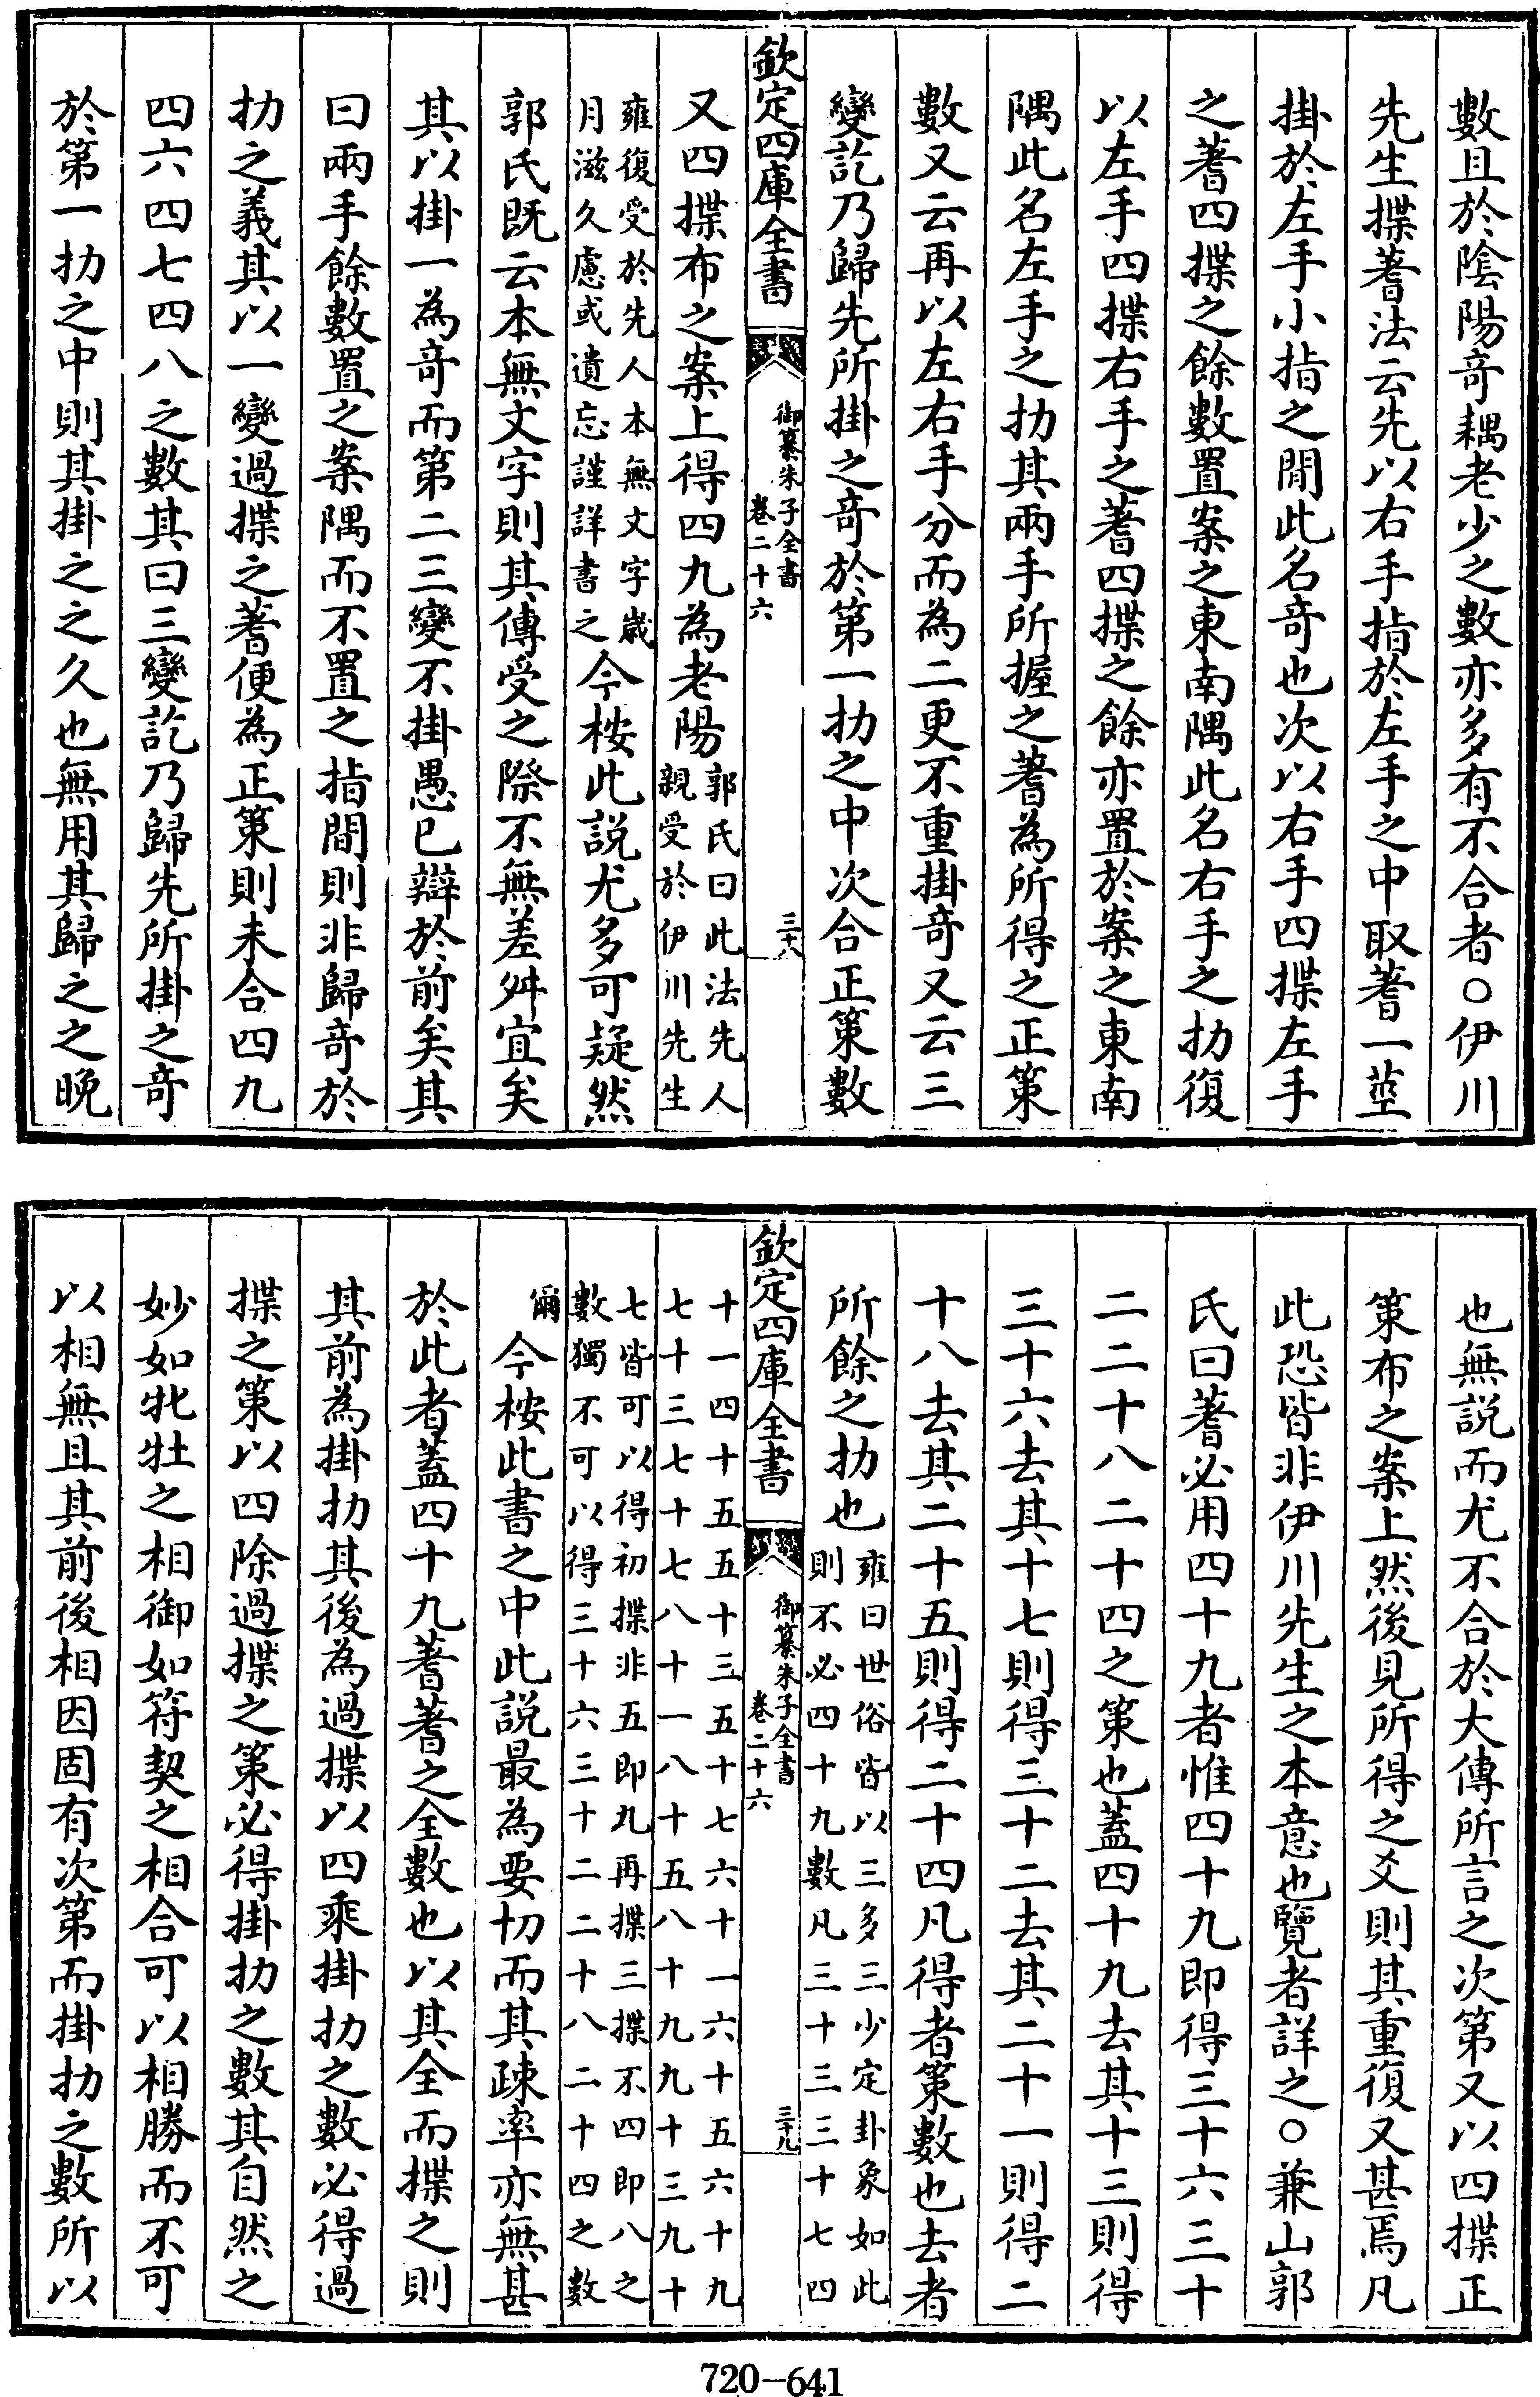 數且於陰陽奇耦老少之數亦多有不合者○伊川
先生揲蓍法云先以右手指於左手之中取蓍一莖
掛於左手小指之閒此名奇也次以右手四揲左手
之蓍四揲之餘數置案之東南隅此名右手之扐復
以左手四揲右手之蓍四揲之餘亦置於案之東南
隅此名左手之扐其兩手所握之蓍為所得之正策
數又云再以左右手分而為二更不重掛奇又云三
變訖乃歸先所掛之奇於第一扐之中次合正策數
欽定四庫全書
御纂朱子全書
卷二十六
三十八
又四揲布之案上得四九為老陽郭氏曰此法先人
親受於伊川先生
雍復受於先人本無文字歲
月滋久慮或遺忘謹詳書之今桉此說尤多可疑然
郭氏既云本無文字則其傳受之際不無差舛宜矣
其以掛一為奇而第二三變不掛愚已辯於前矣其
曰兩手餘數置之案隅而不置之指間則非歸奇於
扐之義其以一變過揲之蓍便為正策則未合四九
四六四七四八之數其曰三變訖乃歸先所掛之奇
於第一扐之中則其掛之之久也無用其歸之之晚
也無說而尤不合於大傳所言之次第又以四揲正
策布之案上然後見所得之爻則其重復又甚焉凡
此恐皆非伊川先生之本意也覽者詳之○兼山郭
氏曰蓍必用四十九者惟四十九即得三十六三十
二二十八二十四之策也蓋四十九去其十三則得
三十六去其十七則得三十二去其二十一則得二
十八去其二十五則得二十四凡得者策數也去者
所餘之扐也雍曰世俗皆以三多三少定卦象如此
則不必四十九數凡三十三三十七四
欽定四庫全書
御纂朱子全書
卷二十六
三十九
十一四十五五十三五十七六十一六十五六十九
七十三七十七八十一八十五八十九九十三九十
七皆可以得初揲非五即九再揲三揲不四即八之
數獨不可以得三十六三十二二十八二十四之數
爾今桉此書之中此說最為要切而其疎率亦無甚
於此者蓋四十九蓍蓍之全數也以其全而揲之則
其前為掛扐其後為過揲以四乘掛扐之數必得過
揲之策以四除過揲之策必得掛扐之數其自然之
妙如牝牡之相御如符契之相合可以相勝而不可
以相無且其前後相因固有次第而掛扐之數所以
720-641